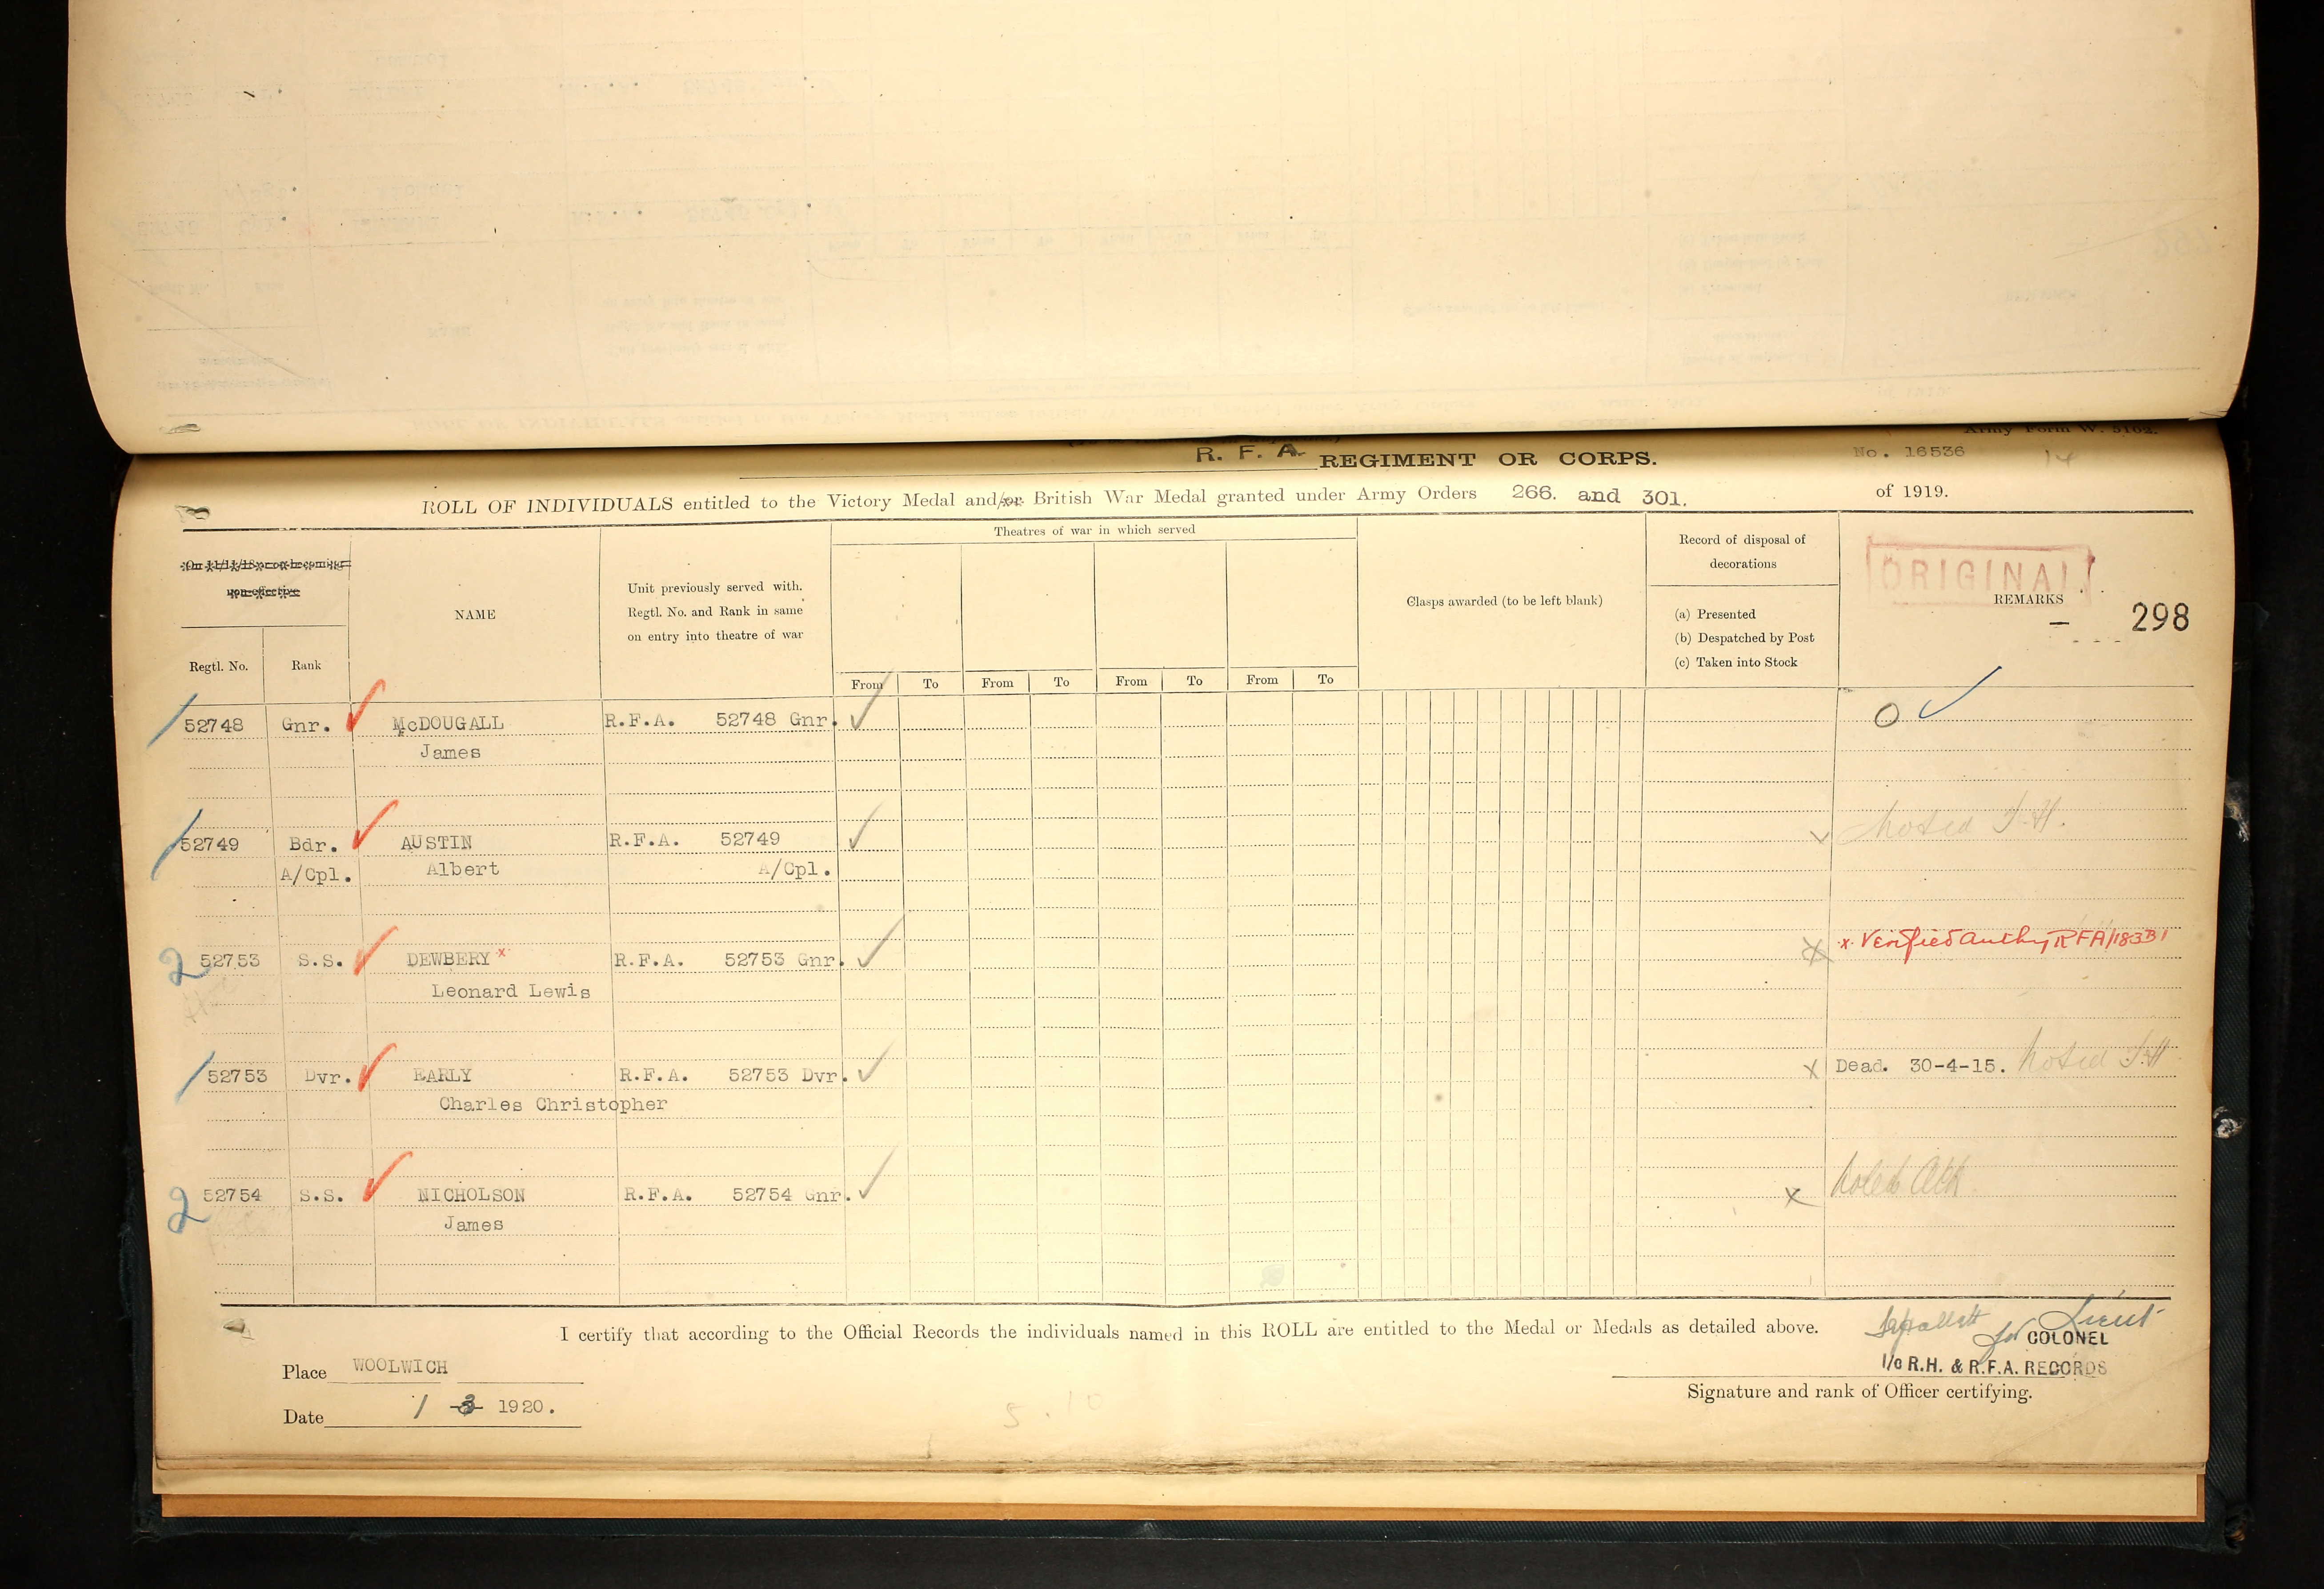 Army Form W. 5102.
R. F. A. REGIMENT OR CORPS.
No. 16536
14
ROLL OF INDIVIDUALS entitled to the Victory Medal and/or British War Medal granted under Army Orders 266. and 301. of 1919.
Theatres of war in which served
Record of disposal of
decorations
ORIGINAL
NAME
Unit previously served with.
Regtl. No. and Rank in same
on entry into theatre of war
Clasps awarded (to be left blank)
(a) Presented
(b) Despatched by Post
(c) Taken into Stock
REMARKS
298
Regtl. No. Rank
From To From To From To From To
52748 Gnr. McDOUGALL R.F.A. 52748 Gnr. O
James
52749 Bdr. AUSTIN R.F.A. 52749 Noted
A/Cpl. Albert A/Cpl.
2 52753 S.S. DEWBERY x R.F.A. 52753 Gnr. x x Verified Authy RFA/183B1
Leonard Lewis
52753 Dvr. EARLY R.F.A. 52753 Dvr. x Dead. 30-4-15. Noted
Charles Christopher
2 52754 S.S. NICHOLSON R.F.A. 52754 Gnr. x Noted
James
I certify that according to the Official Records the individuals named in this ROLL are entitled to the Medal or Medals as detailed above.
Lieut
for COLONEL
I/c R.H. & R.F.A. RECORDS
Place WOOLWICH
Signature and rank of Officer certifying.
Date 1 3 1920.